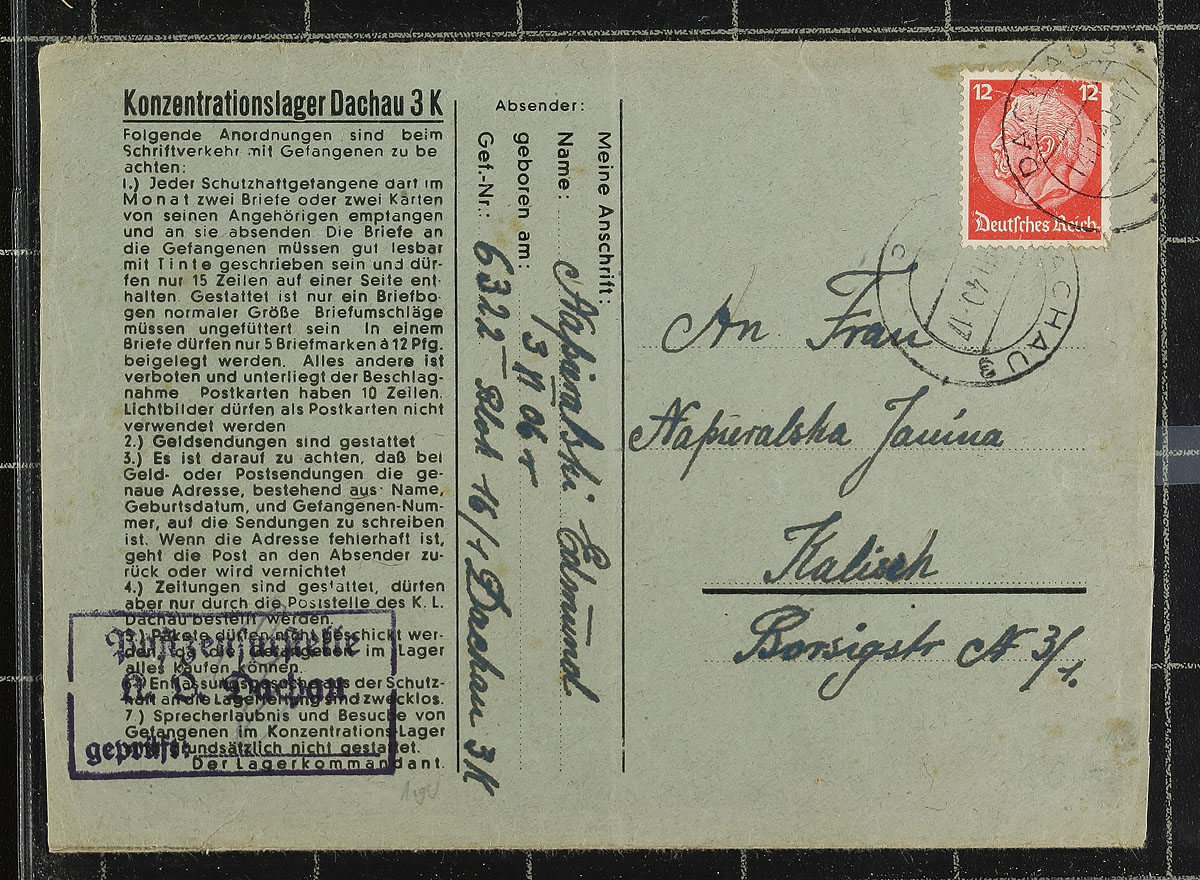 Konzentrationslager Dachau 3 K
Folgende Anordnungen sind beim
Schriftverkehr mit Gefangenen zu be
achten:
1.) Jeder Schutzhaftgefangene darf im
Monat zwei Briefe oder zwei Karten
von seinen Angehörigen empfangen
und an sie absenden. Die Briefe an
die Gefangenen müssen gut lesbar
mit Tinte geschrieben sein und dür-
fen nur 15 Zeilen auf einer Seite ent-
halten. Gestattet ist nur ein Briefbo-
gen normaler Größe Briefumschläge
müssen ungefüttert sein In einem
Briefe dürfen nur 5 Briefmarken à 12 Pfg.
beigelegt werden. Alles andere ist
verboten und unterliegt der Beschlag-
nahme Postkarten haben 10 Zeilen.
Lichtbilder dürfen als Postkarten nicht
verwendet werden
2.) Geldsendungen sind gestattet
3.) Es ist darauf zu achten, daß bei
Geld- oder Postsendungen die ge-
naue Adresse, bestehend aus Name,
Geburtsdatum, und Gefangenen-Num-
mer, auf die Sendungen zu schreiben
ist. Wenn die Adresse fehlerhaft ist,
geht die Post an den Absender zu-
rück oder wird vernichtet
4.) Zeitungen sind gestattet, dürfen
aber nur durch die Poststelle des K. L.
Dachau bestellt werden.
5.) Pakete dürfen nicht geschickt wer-
den, da die Gefangenen im Lager
alles kaufen können.
6.) Entlassungsgesuche aus der Schutz-
haft an die Lagerleitung sind zwecklos.
7.) Sprecherlaubnis und Besuche von
Gefangenen im Konzentrations-Lager
sind grundsätzlich nicht gestattet.
Der Lagerkommandant.
Postzensurstelle
K. L. Dachau
geprüft:
Absender:
Meine Anschrift:
Name: Napieralski Edmund
geboren am: 3 11 06 r
Gef.-Nr.: 6322 – Blok 16/1 Dachau 3K
12 12
Deutsches Reich
DACHAU 3
DACHAU 3
40.-17
An Frau
Napieralska Janina
Kalisch
Borsigstr N 3/1.